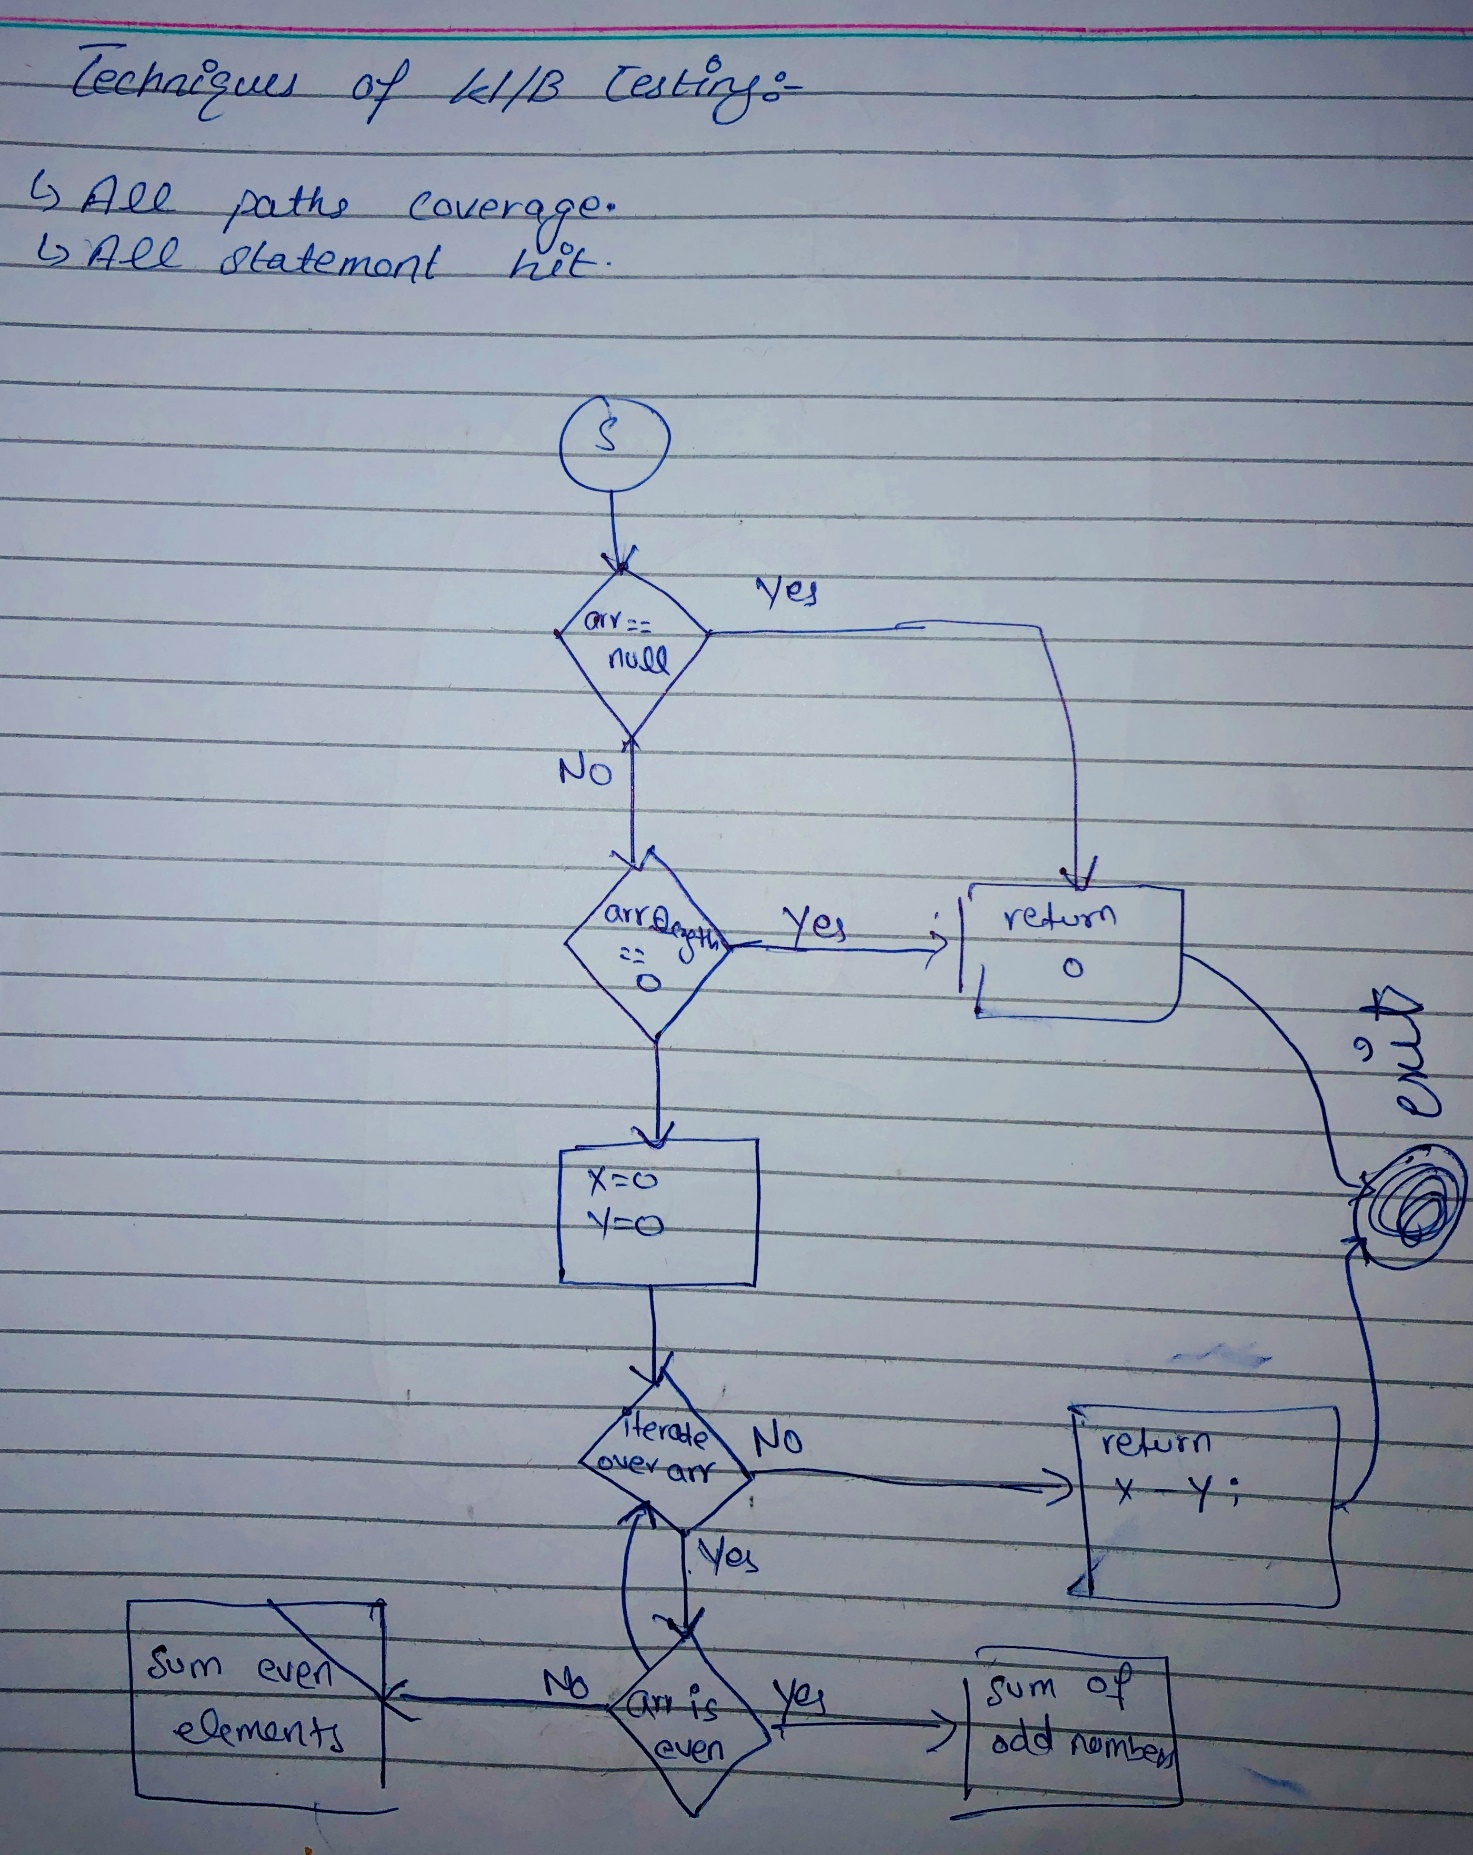 Techniques of W/B Testing:-
↳ All paths coverage.
↳ All statement hit.
S
arr==
null
Yes
No
arr.length
==
0
Yes
return
0
exit
X=0
Y=0
iterate
over arr
No
return
X - Y;
Yes
Sum even
elements
No
arr is
even
Yes
sum of
odd numbers